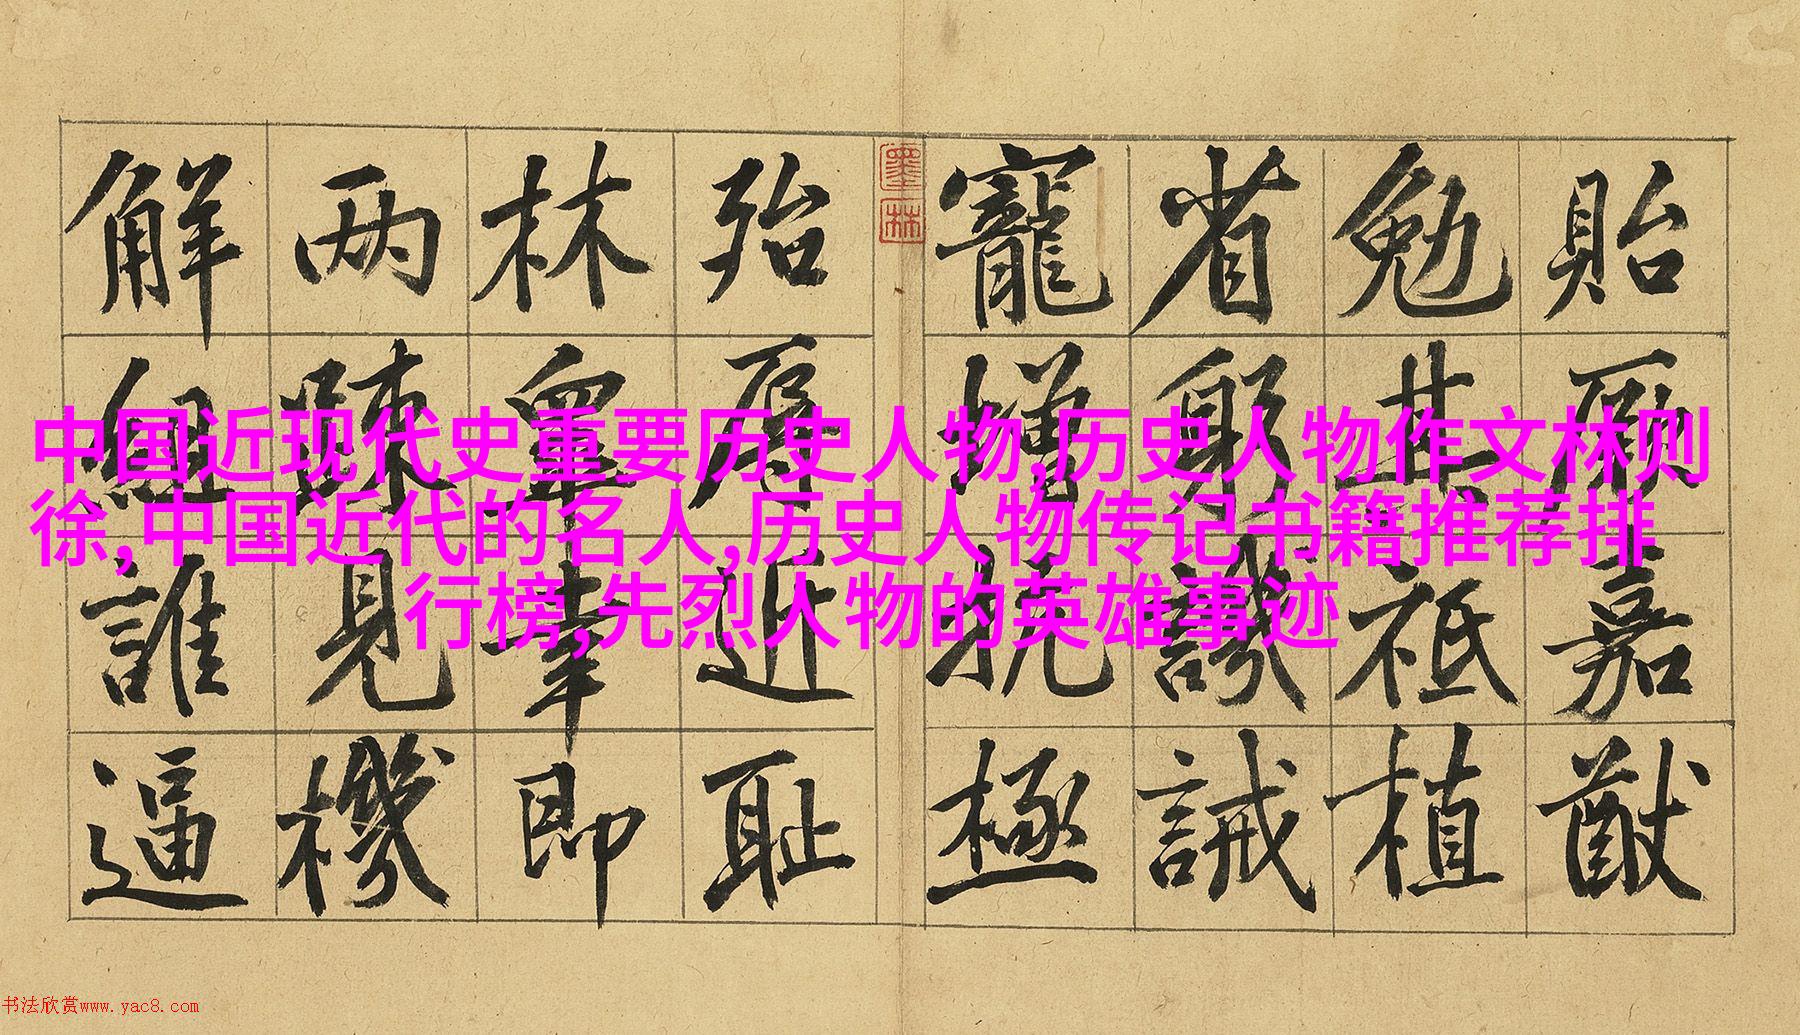 貽厥嘉猷
勉其祗植
省躬譏誡
寵增抗極
墨林
殆辱近耻
林皐幸即
两踈見機
解組誰逼
中国近现代史重要历史人物,历史人物作文林则
徐,中国近代的名人,历史人物传记书籍推荐排
行榜,先烈人物的英雄事迹
书法欣赏www.yac8.com